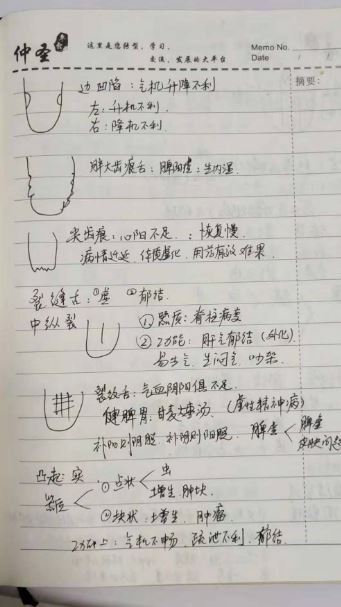 仲圣
这里是您转型、学习、
交流、发展的大平台
Memo No.
Date / /
摘要:
边凹陷:气机升降不利
左:升机不利.
右:降机不利
胖大齿痕舌:脾阳虚;生内湿.
尖齿痕:心阳不足.;恢复慢.
病情迁延 体质虚化.用药有效难果.
裂缝舌:①虚 ②郁结.
中纵裂
①器质:脊柱病变
②功能:肝气郁结(火化)
易生气.生闷气.吵架.
裂纹舌:气血阴阳俱不足.
健脾胃.甘麦大枣汤.
补阳则阴腿.补阴则阳腿. 脾虚
凸起 实
①点状 虫
增生.肿块
②块状:增生.肿瘤
功能上:气机不畅 疏泄不利.郁结.